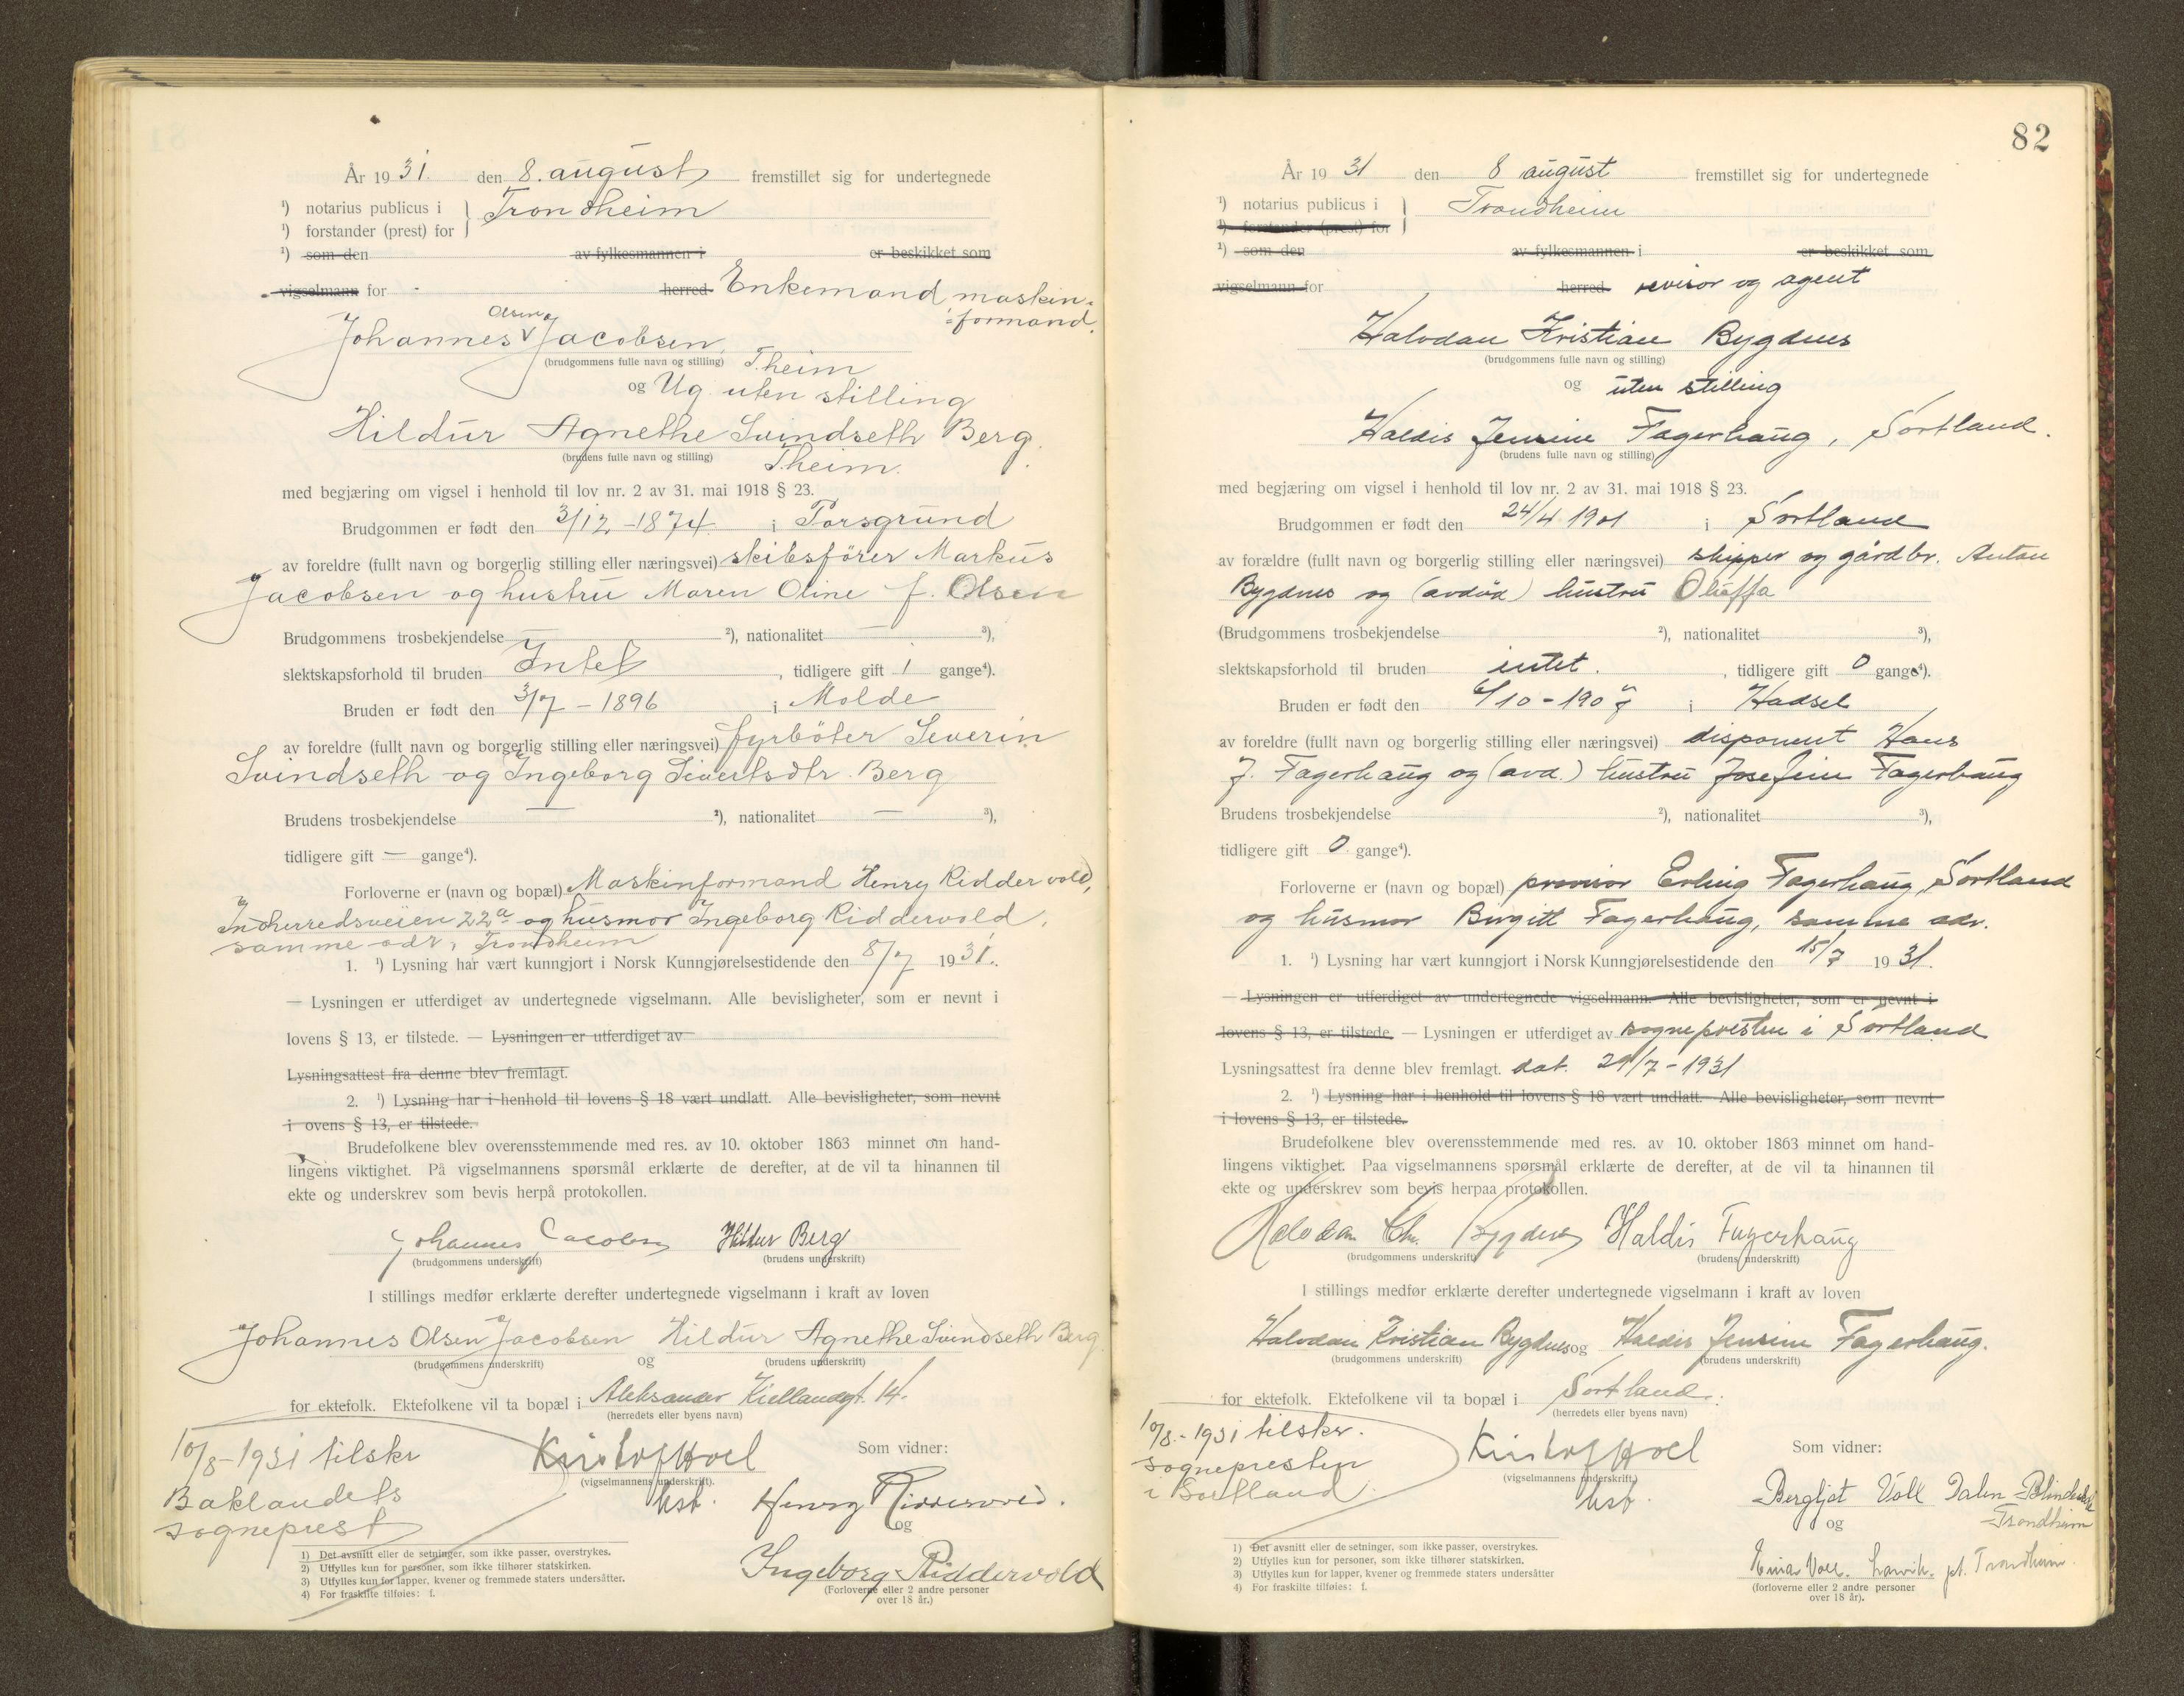 År 1931. den 8. august fremstillet sig for undertegnede
¹) notarius publicus i } Trondheim
¹) forstander (prest) for
¹) som den av fylkesmannen i er beskikket som
vigselmann for herred Enkemand maskin-
formand.
Olsen
Johannes V Jacobsen,
(brudgommens fulle navn og stilling) T.heim
og Ug. uten stilling
Hildur Agnethe Svindseth Berg.
(brudens fulle navn og stilling) T.heim.
med begjæring om vigsel i henhold til lov nr. 2 av 31. mai 1918 § 23.
Brudgommen er født den 3/12-1874 i Porsgrund
av foreldre (fullt navn og borgerlig stilling eller næringsvei) skibsfører Markus
Jacobsen og hustru Maren Oline f. Olsen
Brudgommens trosbekjendelse — ²), nationalitet — ³),
slektskapsforhold til bruden Intet, tidligere gift 1 gange⁴).
Bruden er født den 3/7-1896 i Molde
av foreldre (fullt navn og borgerlig stilling eller næringsvei) fyrbøter Severin
Svindseth og Ingeborg Sivertsdtr. Berg
Brudens trosbekjendelse — ²), nationalitet — ³),
tidligere gift — gange⁴).
Forloverne er (navn og bopæl) Maskinformand Henry Riddervold,
Indherredsveien 22a og husmor Ingeborg Riddervold,
samme adr, Trondheim
1. ¹) Lysning har vært kunngjort i Norsk Kunngjørelsestidende den 8/7 1931.
— Lysningen er utferdiget av undertegnede vigselmann. Alle bevisligheter, som er nevnt i
lovens § 13, er tilstede. — Lysningen er utferdiget av
Lysningsattest fra denne blev fremlagt.
2. ¹) Lysning har i henhold til lovens § 18 vært undlatt. Alle bevisligheter, som nevnt
i ovens § 13, er tilstede.
Brudefolkene blev overensstemmende med res. av 10. oktober 1863 minnet om hand-
lingens viktighet. På vigselmannens spørsmål erklærte de derefter, at de vil ta hinannen til
ekte og underskrev som bevis herpå protokollen.
Johannes Jacobsen Hildur Berg
(brudgommens underskrift) (brudens underskrift)
I stillings medfør erklærte derefter undertegnede vigselmann i kraft av loven
Johannes Olsen Jacobsen Hildur Agnethe Svindseth Berg
(brudgommens underskrift) og (brudens underskrift)
for ektefolk. Ektefolkene vil ta bopæl i Aleksander Kiellandsgt. 14.
(herredets eller byens navn)
10/8-1931 tilskr
Baklandets
sogneprest
Kristof Hoel
(vigselmannens underskrift).
Som vidner:
Henry Riddervold.
og
Ingeborg Riddervold
(Forloverne eller 2 andre personer
over 18 år.)
1) Det avsnitt eller de setninger, som ikke passer, overstrykes.
2) Utfylles kun for personer, som ikke tilhører statskirken.
3) Utfylles kun for lapper, kvener og fremmede staters undersåtter.
4) For fraskilte tilføies: f.
82
År 1931 den 8 august fremstillet sig for undertegnede
¹) notarius publicus i } Trondheim
¹) forstander (prest) for
¹) som den av fylkesmannen i er beskikket som
vigselmann for herred revisor og agent
Halvdan Kristian Bygdnes
(brudgommens fulle navn og stilling)
og uten stilling
Haldis Jensine Fagerhaug, Sortland.
(brudens fulle navn og stilling)
med begjæring om vigsel i henhold til lov nr. 2 av 31. mai 1918 § 23.
Brudgommen er født den 24/4 1901 i Sortland
av forældre (fullt navn og borgerlig stilling eller næringsvei) skipper og gårdbr. Anton
Bygdnes og (avdød) hustru Oluffa
(Brudgommens trosbekjendelse ²), nationalitet ³),
slektskapsforhold til bruden intet., tidligere gift 0 gange⁴).
Bruden er født den 6/10-1907 i Hadsel
av foreldre (fullt navn og borgerlig stilling eller næringsvei) disponent Hans
J. Fagerhaug og (avd.) hustru Josefine Fagerhaug
Brudens trosbekjendelse ²), nationalitet ³),
tidligere gift 0 gange⁴).
Forloverne er (navn og bopæl) provisor Erling Fagerhaug, Sortland
og husmor Birgitt Fagerhaug, samme adr.
1. ¹) Lysning har vært kunngjort i Norsk Kunngjørelsestidende den 15/7 1931.
— Lysningen er utferdiget av undertegnede vigselmann. Alle bevisligheter, som er nevnt i
lovens § 13, er tilstede. — Lysningen er utferdiget av sognepresten i Sortland
Lysningsattest fra denne blev fremlagt. dat. 29/7-1931
2. ¹) Lysning har i henhold til lovens § 18 vært undlatt. Alle bevisligheter, som nevnt
i lovens § 13, er tilstede.
Brudefolkene blev overensstemmende med res. av 10. oktober 1863 minnet om hand-
lingens viktighet. Paa vigselmannens spørsmål erklærte de derefter, at de vil ta hinannen til
ekte og underskrev som bevis herpaa protokollen.
Halvdan Chr. Bygdnes Haldis Fagerhaug
(brudgommens underskrift) (brudens underskrift)
I stillings medfør erklærte derefter undertegnede vigselmann i kraft av loven
Halvdan Kristian Bygdnes og Haldis Jensine Fagerhaug.
(brudgommens underskrift) (brudens underskrift)
for ektefolk. Ektefolkene vil ta bopæl i Sortland.
(herredets eller byens navn)
10/8-1931 tilskr.
sognepresten
i Sortland.
Kristof Hoel
(vigselmannens underskrift)
Som vidner:
Bergljot Voll Dalen
og Trondheim
Einar Voll. Larvik. pt. Trondheim.
(forloverne eller 2 andre personer
over 18 år).
1) Det avsnitt eller de setninger, som ikke passer, overstrykes.
2) Utfylles kun for personer, som ikke tilhører statskirken.
3) Utfylles kun for lapper, kvener og fremmede staters undersåtter
4) For fraskilte tilføies: f.